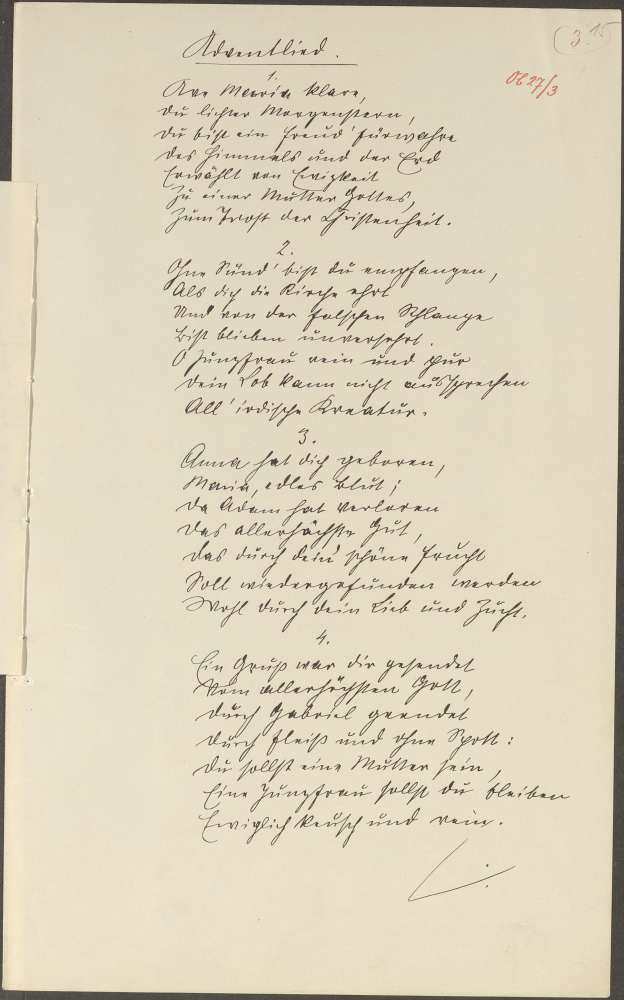 (3.) 15
Adventlied.
Ob 27/3
1.
Ave Maria klare,
du lichter Morgenstern,
du bist ein Freud' fürwahre
des Himmels und der Erd
Erwählt von Ewigkeit
Zu einer Mutter Gottes,
Zum Trost der Christenheit.
2.
Ohne Sünd' bist du empfangen,
Als dich die Kirche ehrt
Und von der falschen Schlange
Bist blieben unversehrt.
O Jungfrau rein und pur
dein Lob kann nicht aussprechen
All' irdische Kreatur.
3.
Anna hat dich geboren,
Maria, edles Blut;
da Adam hat verloren
das allerhöchste Gut,
das durch dein' schöne Frucht
Soll wiedergefunden werden
Wohl durch dein Lieb und Zucht.
4.
Ein Gruß war dir gesendet
Vom allerhöchsten Gott,
durch Gabriel geendet
durch Fleiß und ohne Spott:
du sollst eine Mutter sein,
Eine Jungfrau sollst du bleiben
Ewiglich keusch und rein.